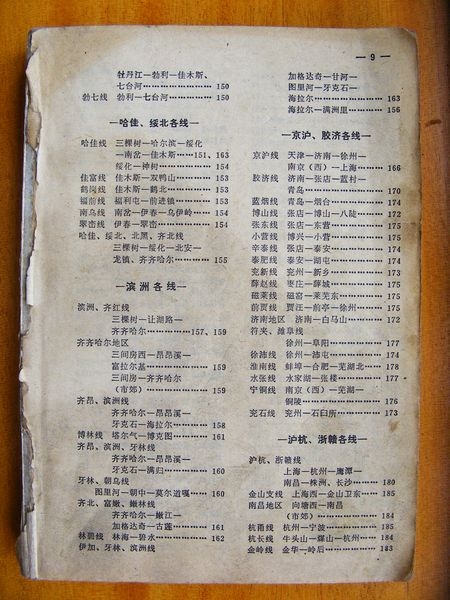 — 9 —
牡丹江—勃利—佳木斯、
七台河…………………… 150
勃七线 勃利—七台河………… 150
—哈佳、绥北各线—
哈佳线 三棵树—哈尔滨—绥化
—南岔—佳木斯……151、163
绥化—神树……………… 154
佳富线 佳木斯—双鸭山……… 153
鹤岗线 佳木斯—鹤北………… 153
福前线 福利屯—前进镇……… 153
南乌线 南岔—伊春—乌伊岭… 154
翠峦线 伊春—翠峦…………… 154
哈佳、绥北、北黑、齐北线
三棵树—绥化—北安—
龙镇、齐齐哈尔………… 155
—滨洲各线—
滨洲、齐红线
三棵树—让湖路—
齐齐哈尔…………157、159
齐齐哈尔地区
三间房西—昂昂溪—
富拉尔基………………… 159
三间房—齐齐哈尔
(市郊)………………… 159
齐昂、滨洲线
齐齐哈尔—昂昂溪—
牙克石—海拉尔………… 158
博林线 塔尔气—博克图……… 161
齐昂、滨洲、牙林线
齐齐哈尔—昂昂溪—
牙克石—满归…………… 160
牙林、朝乌线
图里河—朝中—莫尔道嘎… 160
齐北、富嫩、嫩林线
齐齐哈尔—嫩江—
加格达奇—古莲………… 161
林碧线 林海—碧水…………… 162
伊加、牙林、滨洲线
加格达奇—甘河—
图里河—牙克石—
海拉尔…………………… 163
海拉尔—满洲里………… 156
—京沪、胶济各线—
京沪线 天津—济南—徐州—
南京(西)—上海……… 166
胶济线 济南—张店—蓝村—
青岛……………………… 170
蓝烟线 青岛—烟台…………… 174
博山线 张店—博山—八陡…… 172
张东线 张店—东营…………… 175
小营线 博兴—小营…………… 175
辛泰线 张店—泰安…………… 174
泰肥线 泰安—湖屯…………… 174
兖新线 兖州—新乡…………… 173
薛赵线 枣庄—薛城…………… 175
磁莱线 磁窑—莱芜东………… 175
前贾线 贾汪—前亭—徐州…… 175
济南地区 济南—白马山……… 172
符夹、濉阜线
徐州—阜阳……………… 177
徐沛线 徐州—沛屯…………… 174
淮南线 蚌埠—合肥—芜湖北… 178
水张线 水家湖—张楼………… 177
宁铜线 南京(西)—芜湖—
铜陵……………………… 176
兖石线 兖州—石臼所………… 173
—沪杭、浙赣各线—
沪杭、浙赣线
上海—杭州—鹰潭—
南昌—株洲、长沙……… 180
金山支线 上海西—金山卫东… 185
南昌地区 向塘西—南昌
(市郊)………………… 184
杭甬线 杭州—宁波…………… 185
杭长线 牛头山—煤山—杭州… 184
金岭线 金华—岭后…………… 183